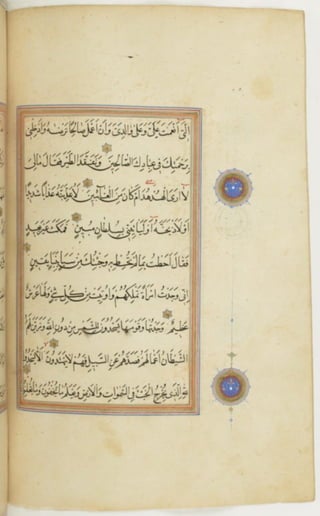 الَّتِي أَنْعَمْتَ عَلَيَّ وَعَلَى وَالِدَيَّ وَأَنْ أَعْمَلَ صَالِحًا تَرْضَاهُ وَأَدْخِلْنِي
بِرَحْمَتِكَ فِي عِبَادِكَ الصَّالِحِينَ وَتَفَقَّدَ الطَّيْرَ فَقَالَ مَا لِيَ
لَا أَرَى الْهُدْهُدَ أَمْ كَانَ مِنَ الْغَائِبِينَ لَأُعَذِّبَنَّهُ عَذَابًا شَدِيدًا
أَوْ لَأَذْبَحَنَّهُ أَوْ لَيَأْتِيَنِّي بِسُلْطَانٍ مُبِينٍ فَمَكَثَ غَيْرَ بَعِيدٍ
فَقَالَ أَحَطْتُ بِمَا لَمْ تُحِطْ بِهِ وَجِئْتُكَ مِنْ سَبَإٍ بِنَبَإٍ يَقِينٍ
إِنِّي وَجَدْتُ امْرَأَةً تَمْلِكُهُمْ وَأُوتِيَتْ مِنْ كُلِّ شَيْءٍ وَلَهَا عَرْشٌ
عَظِيمٌ وَجَدْتُهَا وَقَوْمَهَا يَسْجُدُونَ لِلشَّمْسِ مِنْ دُونِ اللَّهِ وَزَيَّنَ لَهُمُ
الشَّيْطَانُ أَعْمَالَهُمْ فَصَدَّهُمْ عَنِ السَّبِيلِ فَهُمْ لَا يَهْتَدُونَ أَلَّا يَسْجُدُوا
لِلَّهِ الَّذِي يُخْرِجُ الْخَبْءَ فِي السَّمَوَاتِ وَالْأَرْضِ وَيَعْلَمُ مَا تُخْفُونَ وَمَا تُعْلِنُونَ